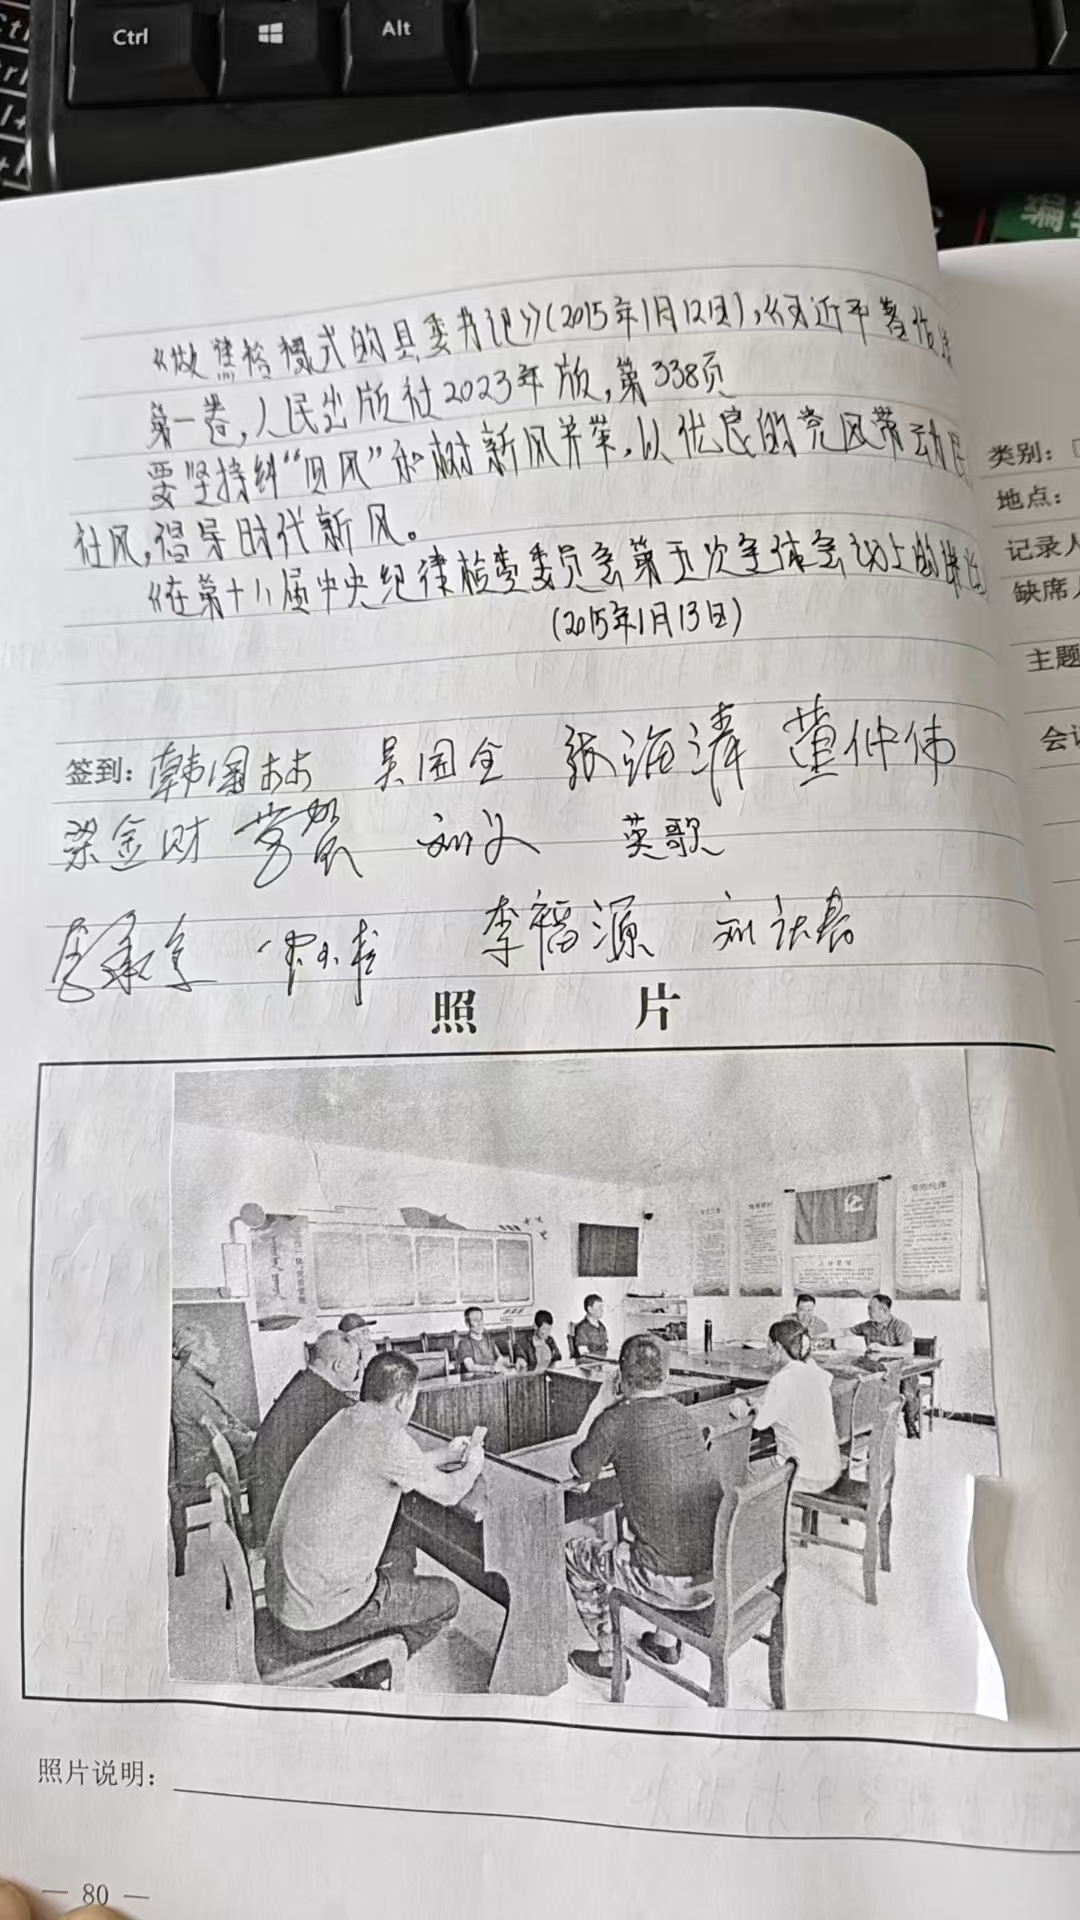 Ctrl
Alt
《做焦裕禄式的县委书记》(2015年1月12日),《习近平著作选
第一卷,人民出版社2023年版,第338页
要坚持纠“四风”和树新风并举,以优良的党风带动民
社风,倡导时代新风。
《在第十八届中央纪律检查委员会第五次全体会议上的讲话
(2015年1月13日)
签到: 韩国林 吴国全 张海清 董仲伟
梁金财 刘义 英歌
李福源
照 片
照片说明:
— 80 —
类别:
地点:
记录人
缺席人
主题
会议